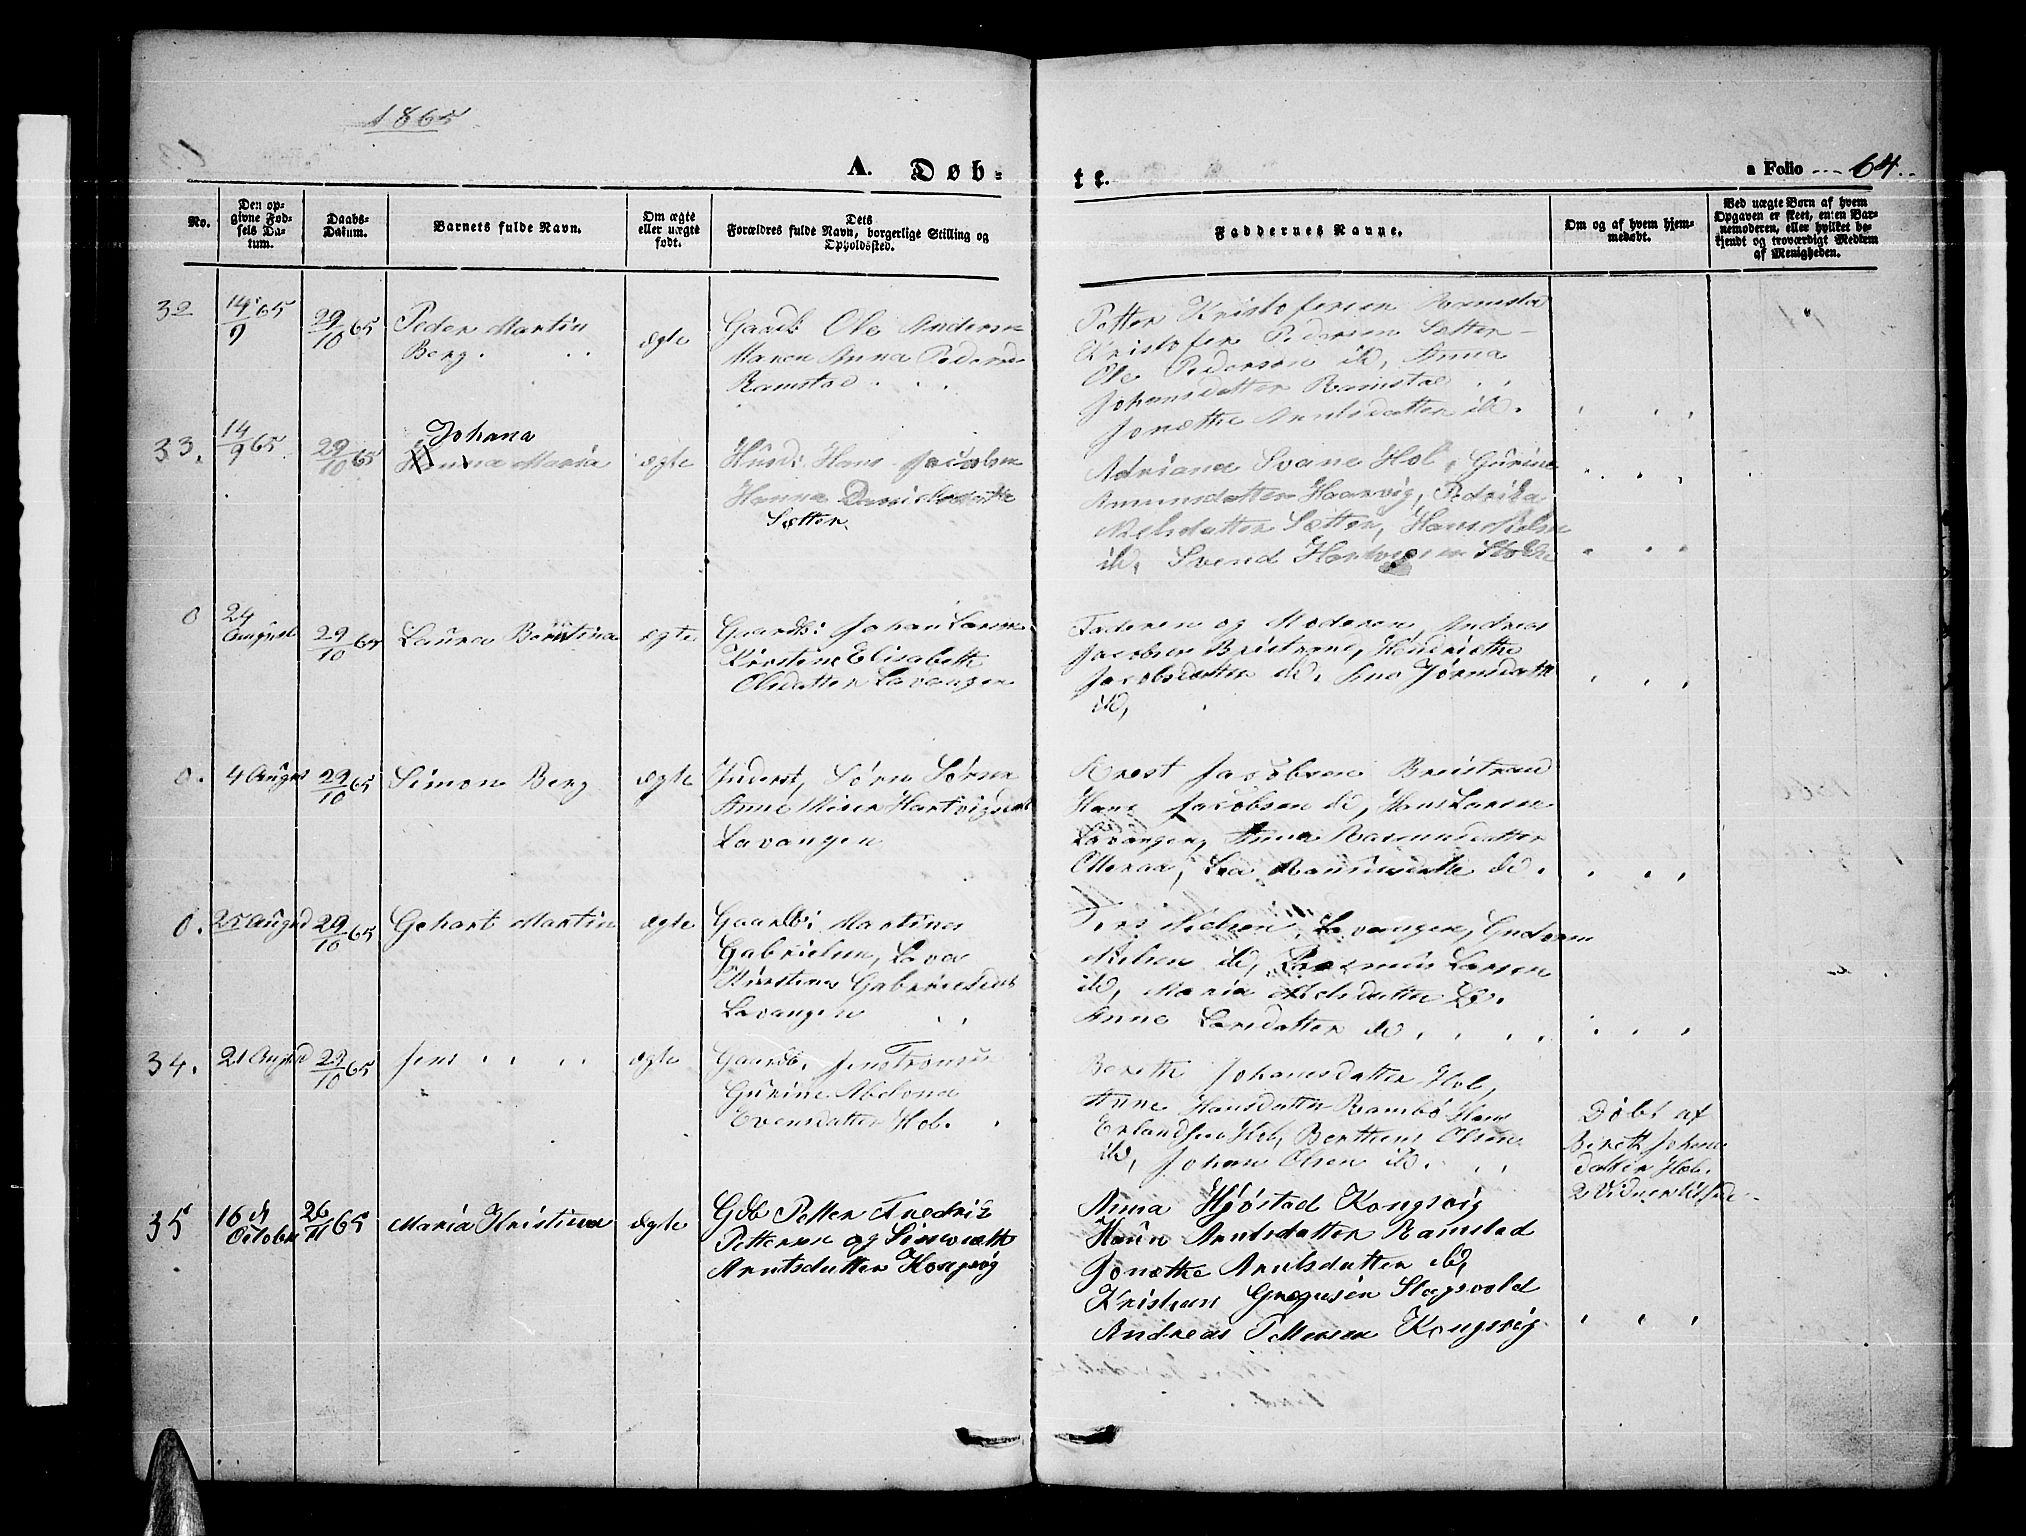 1865
A. Døb-
te.
a Folio 64.
No.
Den op-
givne Fød-
sels Da-
tum.
Daabs-
Datum.
Barnets fulde Navn.
Om ægte
eller uægte
født.
Dets
Forældres fulde Navn, borgerlige Stilling og
Opholdssted.
Faddernes Navne.
Om og af hvem hjem-
medøbt.
Ved uægte Børn af hvem
Opgaven er skeet, enten Bar-
nemoderen, eller hvilket be-
kjendt og troværdigt Medlem
af Menigheden.
32
14/9 65
29/10 65
Peder Martin
Berg.
ægte
Gaardb. Ole Andersen
Maren Anna Peders
Ramstad
Petter Kristofersen Ramstad
Kristofer Pedersen Sætter
Ole Pedersen ib, Anna
Johansdatter Ramstad
Jonethe Arntsdatter ib.
33.
14/9 65
29/10 65
Johana
Hanna Maria
ægte
Husm: Hans Jacobsen
Hanna
Sætter
Adriana Svane Hol, Gurine
Amunsdatter Haarvig, Pedrika
Nilsdatter Sætter, Hans Nilsen
ib, Svend Hartvigsen
0
24
August
29/10 65
Laura Berntina
ægte
Gaardb: Johan Larsen
Kirstine Elisabeth
Olsdatter Lavangen
Faderen og Moderen, Andreas
Jacobsen Breistrand, Hendriethe
Jacobsdatter ib. Ane Jørnsdatter
ib,
0.
4 August
29/10 65
Simon Berg
ægte
Inderst, Sørn Sørnsen
Anne Hartvigsdat
Lavangen
Arest Jacobsen Breistrand
Hans Jacobsen ib, Hans Larsen
Lavangen, Anna Rasmusdatter
Otteraa, Lea ib.
0.
25 August
29/10 65
Gehart Martin
ægte
Gaardb: Martines
Gabrielsen, Lava
Kirstines Gabrielsdat
Lavangen
Nielsen Lavangen,
Nilsen ib, Rasmus Larsen
ib, Maria Nilsdatter ib.
Anne Larsdatter ib.
34.
21 August
29/10 65
Jens
ægte
Gaardb. Jens
Gurine Abelona
Evensdatter Hol.
Bereth Johansdatter Hol,
Anne Hansdatter Rambø Hans
Erlandsen Hol, Bertheus Olsen
ib, Johan Olsen ib.
Døbt af
Bereth Johans
datter Hol.
2 Vidner tilsted
35
16 d
October
26/11 65
Maria Kristina
ægte
Gdb Petter Fredrik
Pettersen og
Arntsdatter Kongsvig
Anna Hjøstad Kongsvig
Arntsdatter Ramstad
Jonethe Arntsdatter ib,
Kristian Gregusen Slagsvold
Andreas Pettersen Kongsvig